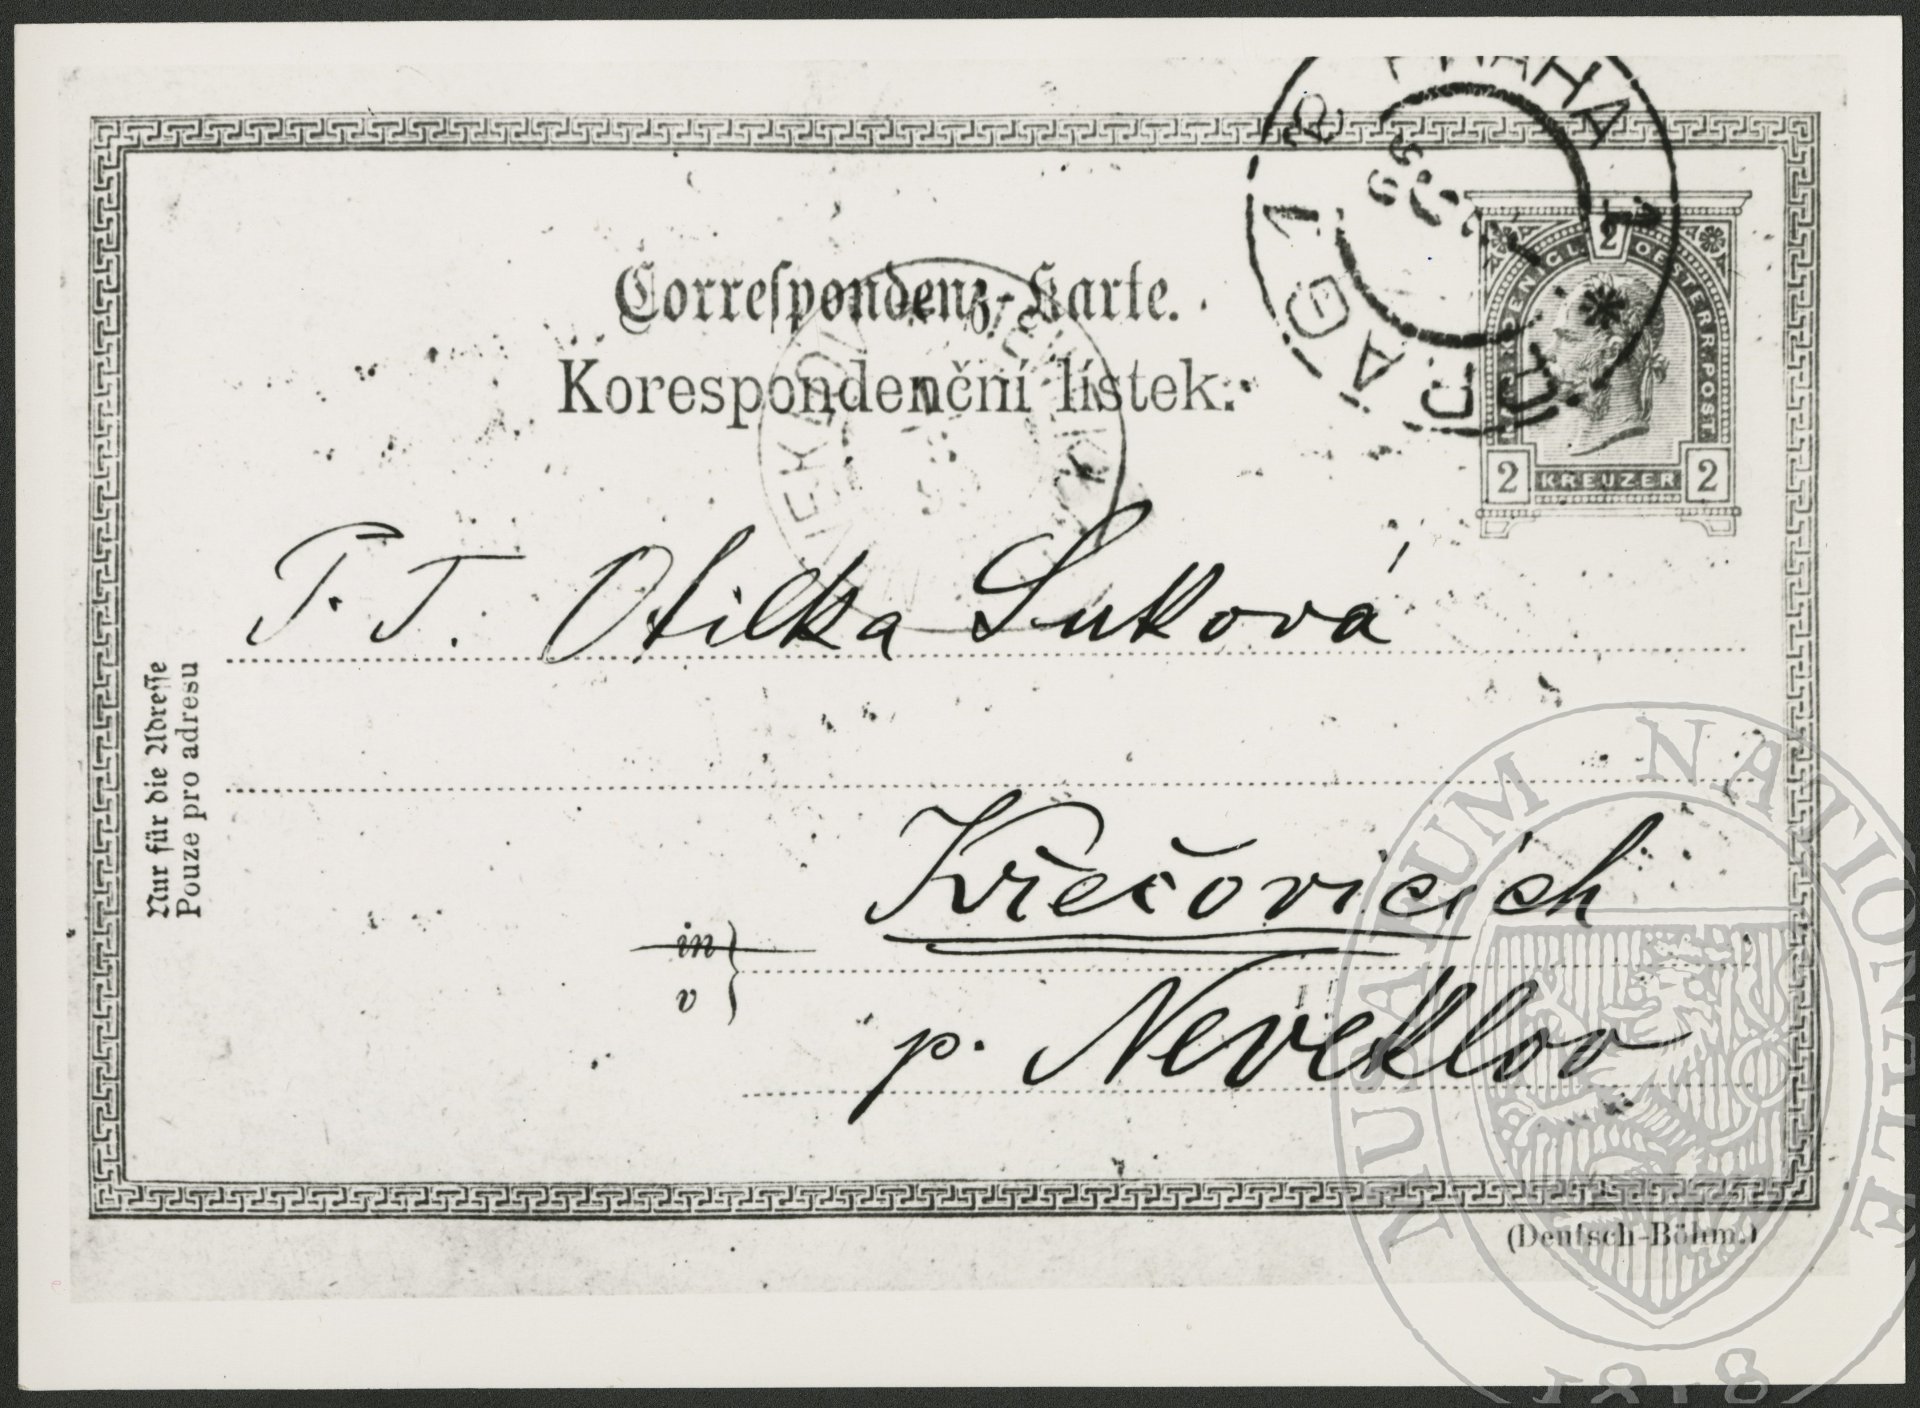 PRAHA
PRAG
Correſpondenz-Karte.
Korespondenční lístek.
2
KAIS. KÖNIGL. OESTERR. POST.
2 KREUZER 2
P. T. Otilka Suková
Nur für die Adreſſe
Pouze pro adresu
Křečovicích
in
v
p. Neveklov
(Deutsch-Böhm.)
MUSAEUM NATIONALE
1818